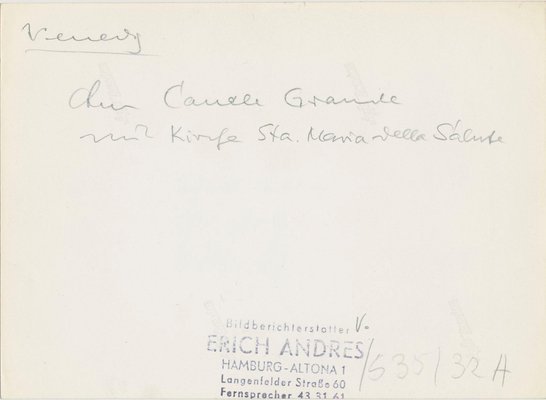 Venedig
Am Canale Grande
mit Kirche Sta. Maria della Salute
Bildberichterstatter V.
ERICH ANDRES /535/32A
HAMBURG-ALTONA 1
Langenfelder Straße 60
Fernsprecher 43 31 61